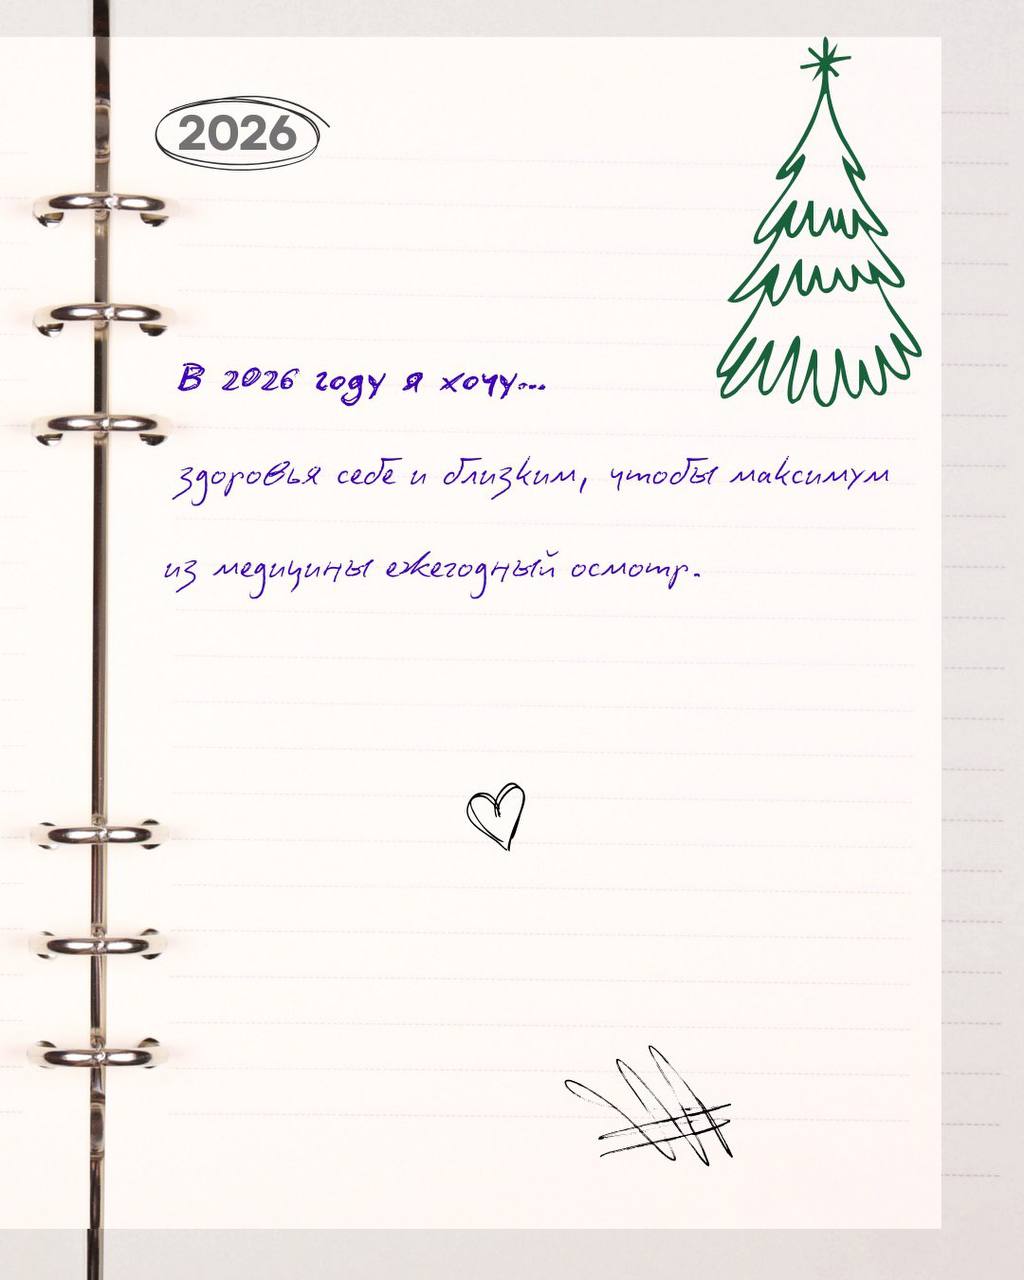 2026
В 2026 году я хочу...
здоровья себе и близким, чтобы максимум
из медицины ежегодный осмотр.